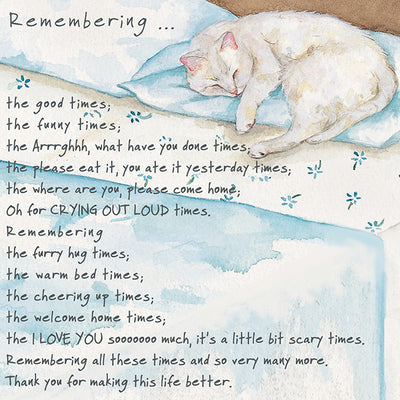 Remembering ...
the good times;
the funny times;
the Arrrghhh, what have you done times;
the please eat it, you ate it yesterday times;
the where are you, please come home;
Oh for CRYING OUT LOUD times.
Remembering
the furry hug times;
the warm bed times;
the cheering up times;
the welcome home times;
the I LOVE YOU sooooooo much, it's a little bit scary times.
Remembering all these times and so very many more.
Thank you for making this life better.